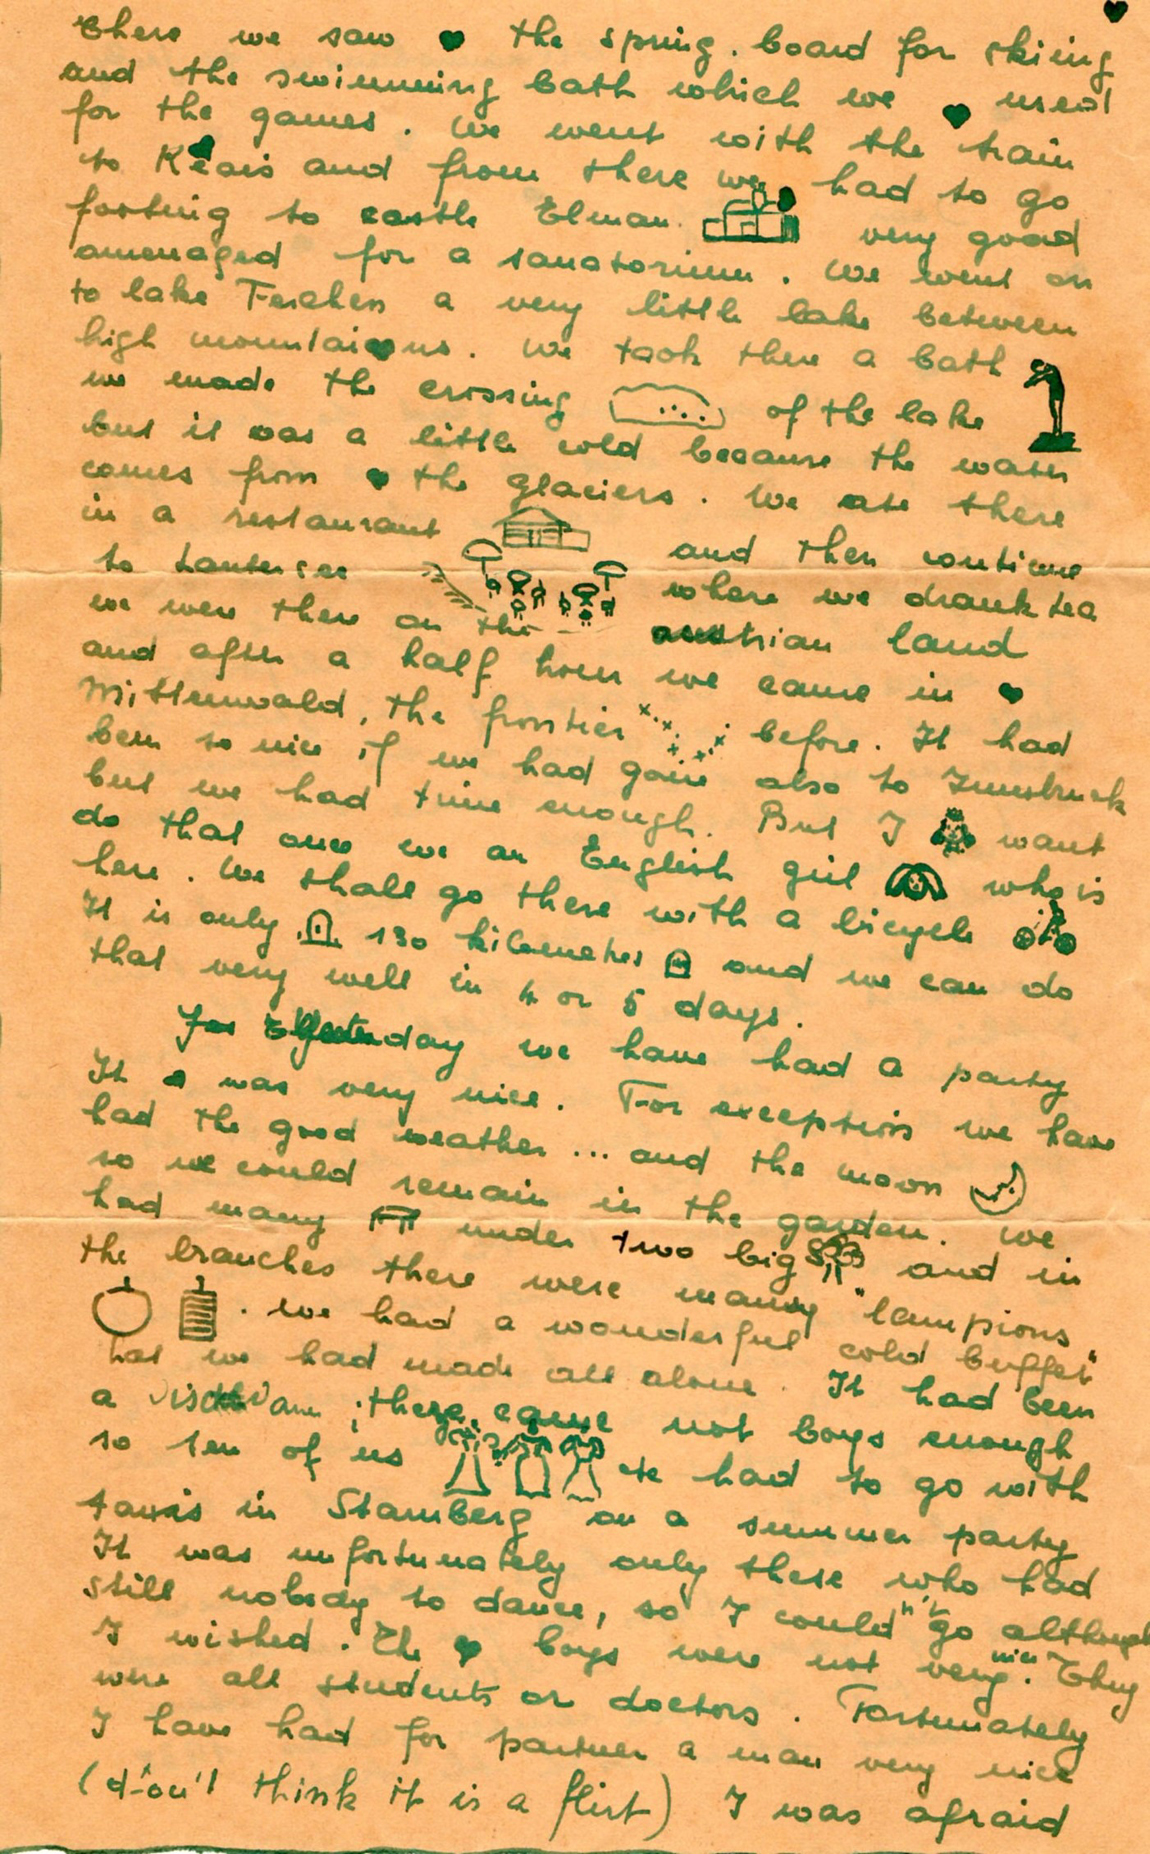 There we saw the spring. board for skiing
and the swimming bath which we used
for the games. We went with the train
to Kleais and from there we had to go
footing to castle Elmau. very good
amenaged for a sanatorium. We went on
to lake Ferchen a very little lake between
high mountains. We took there a bath
we made the crossing of the lake
but it was a little cold because the water
comes from the glaciers. We ate there
in a restaurant and then continue
to Lautersee where we drank tea
we were there on the austrian land
and after a half hour we came in
Mittenwald, the frontier before. It had
been so nice if we had gone also to Innsbruck
but we had time enough. But I want
do that once we an English girl who is
here. We shall go there with a bicycle
It is only 130 kilometres and we can do
that very well in 4 or 5 days.
Yesterday we have had a party
It was very nice. For exception we have
had the good weather ... and the moon
so we could remain in the garden. We
had many under two big and in
the branches there were many "lampions
. We had a wonderful cold buffet"
that we had made all alone. It had been
a ; there came not boys enough
so ten of us had to go with
taxis in Starnberg on a summer party
It was unfortunately only these who had
still nobody to dance, so I couldn't go although
I wished. The boys were not very nice. They
were all students or doctors. Fortunately
I have had for partner a man very nice
(d'on't think it is a flirt) I was afraid